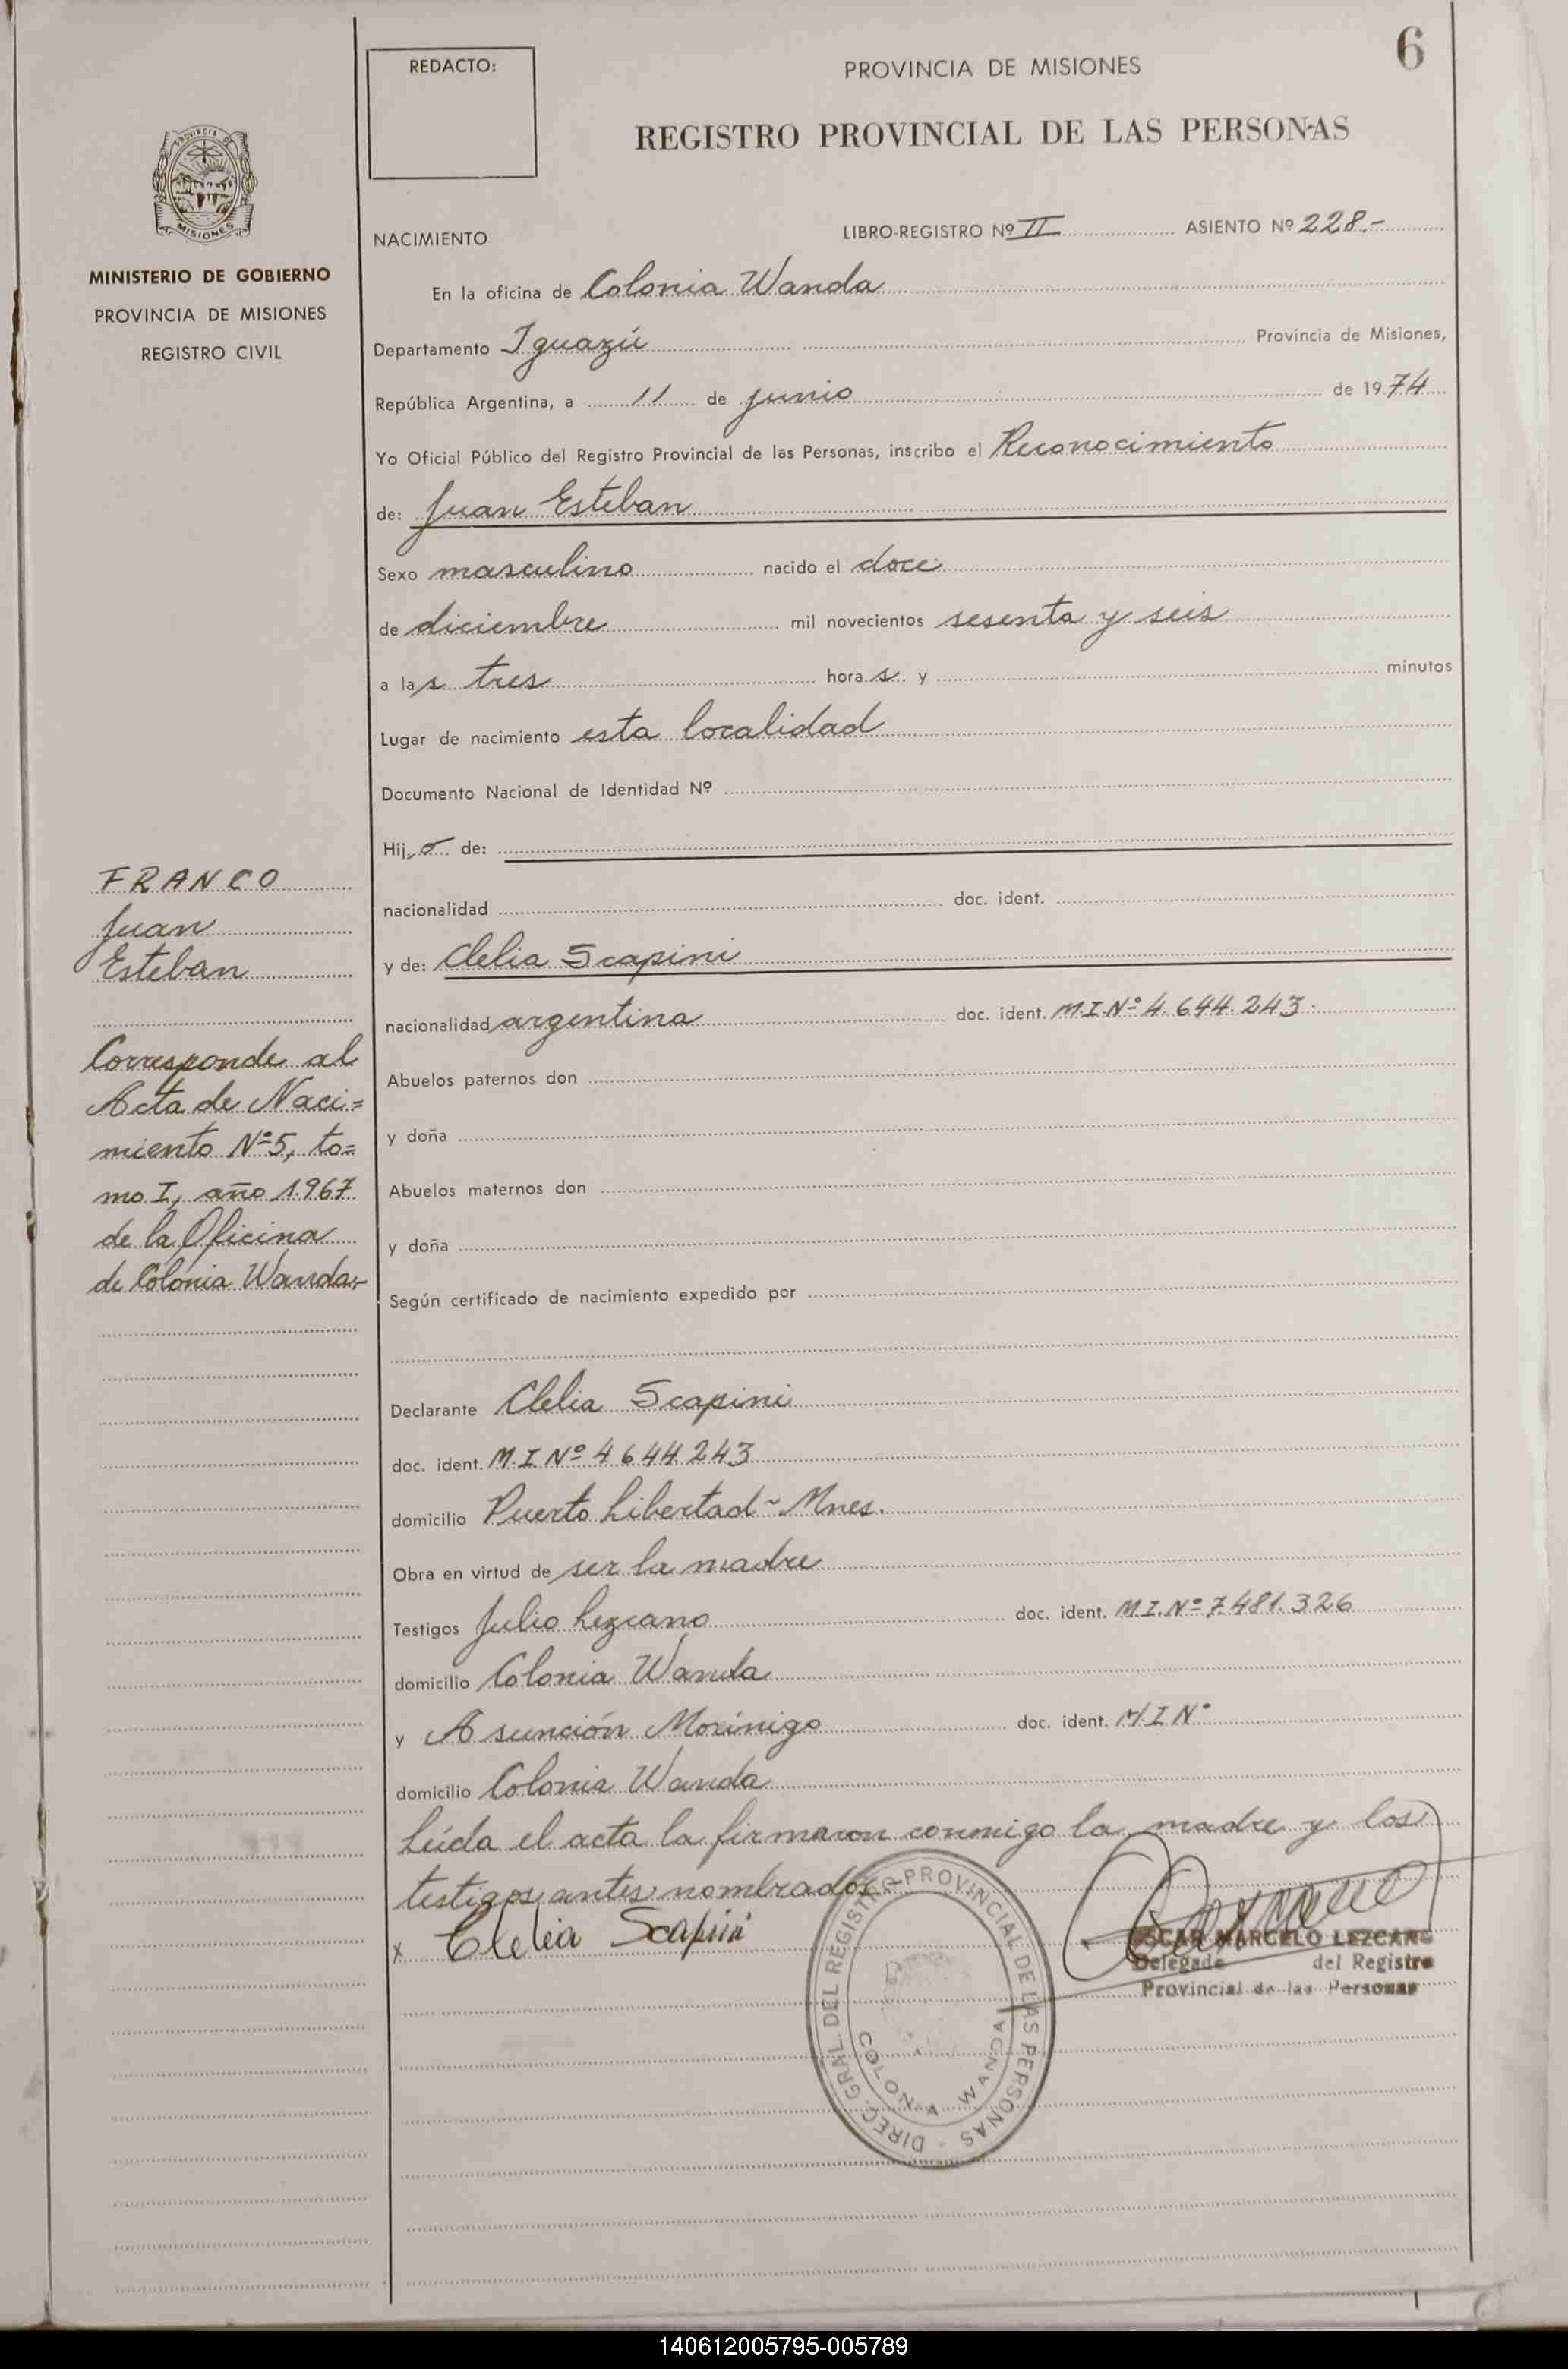 6
REDACTO:
PROVINCIA DE MISIONES
REGISTRO PROVINCIAL DE LAS PERSONAS
PROVINCIA DE
MISIONES
MINISTERIO DE GOBIERNO
PROVINCIA DE MISIONES
REGISTRO CIVIL
NACIMIENTO LIBRO-REGISTRO Nº II ASIENTO Nº 228.-
En la oficina de Colonia Wanda
Departamento Iguazú Provincia de Misiones,
República Argentina, a 11 de junio de 1974
Yo Oficial Público del Registro Provincial de las Personas, inscribo el Reconocimiento
de: Juan Esteban
Sexo masculino nacido el doce
de diciembre mil novecientos sesenta y seis
a las tres horas y minutos
Lugar de nacimiento esta localidad
Documento Nacional de Identidad Nº
Hijo de:
nacionalidad doc. ident.
y de: Clelia Scapini
nacionalidad argentina doc. ident. M.I.Nº 4.644.243.
Abuelos paternos don
y doña
Abuelos maternos don
y doña
Según certificado de nacimiento expedido por
Declarante Clelia Scapini
doc. ident. M.I. Nº 4.644.243
domicilio Puerto Libertad - Mnes.
Obra en virtud de ser la madre
Testigos Julio Lezcano doc. ident. M.I.Nº 7.481.326
domicilio Colonia Wanda
y Asunción Morínigo doc. ident. M.I Nº
domicilio Colonia Wanda
Leída el acta la firmaron conmigo la madre y los
testigos antes nombrados.-
x Clelia Scapini
OSCAR MARCELO LEZCANO
Delegado del Registro
Provincial de las Personas
DIREC. GRAL. DEL REGISTRO PROVINCIAL DE LAS PERSONAS -
COLONIA WANDA
FRANCO
Juan
Esteban
Corresponde al
Acta de Naci=
miento Nº 5, to=
mo I, año 1.967
de la Oficina
de Colonia Wanda.-
140612005795-005789